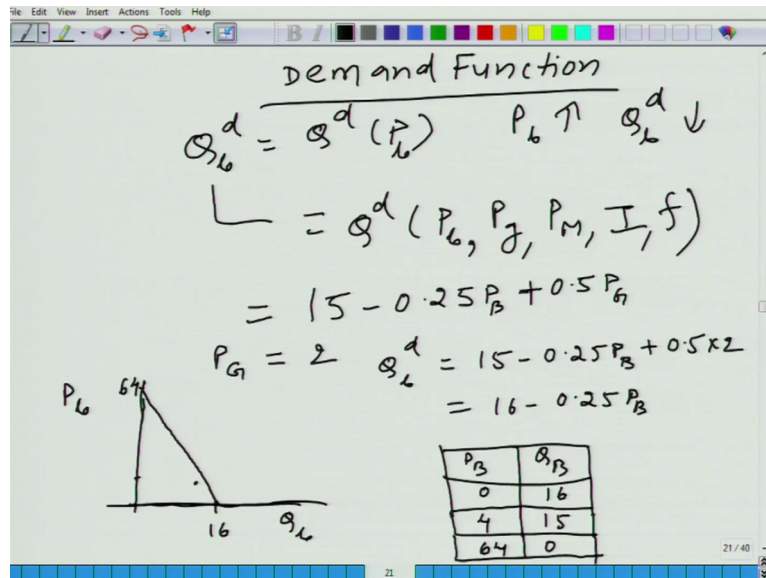 File Edit View Insert Actions Tools Help
B I
Demand Function
Q_b^d = Q^d (P_b) P_b ↑ Q_b^d ↓
= Q^d (P_b, P_g, P_M, I, f)
= 15 - 0.25 P_B + 0.5 P_G
P_G = 2 Q_b^d = 15 - 0.25 P_B + 0.5 × 2
= 16 - 0.25 P_B
P_b 64
16 Q_b
P_B Q_B
0 16
4 15
64 0
21 / 40
21